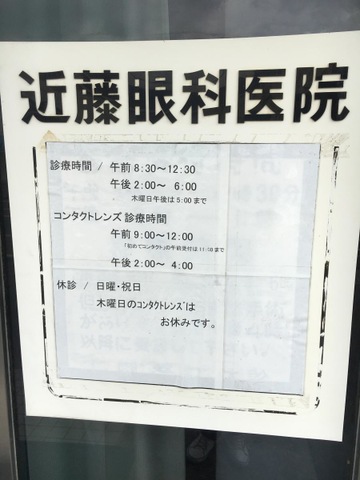 近藤眼科医院
診療時間 / 午前 8:30～12:30
午後 2:00～ 6:00
木曜日午後は 5:00 まで
コンタクトレンズ 診療時間
午前 9:00～12:00
「初めてコンタクト」の午前受付は 11:30 まで
午後 2:00～ 4:00
休診 / 日曜・祝日
木曜日のｺﾝﾀｸﾄﾚﾝｽﾞは
お休みです。